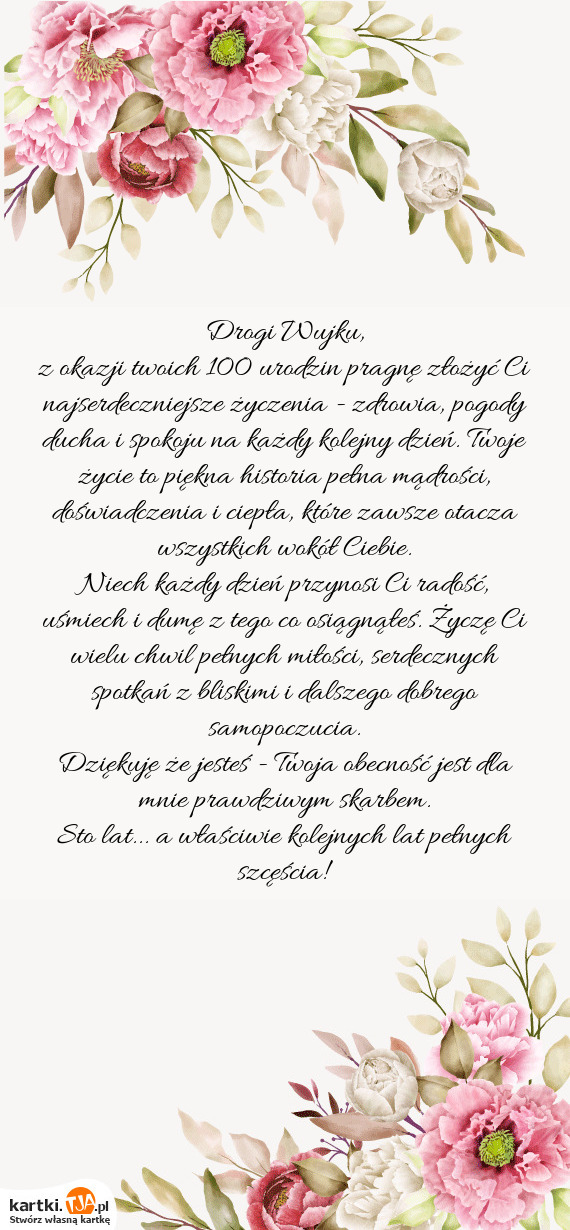 Drogi Wujku,
z okazji twoich 100 urodzin pragnę złożyć Ci
najserdeczniejsze życzenia - zdrowia, pogody
ducha i spokoju na każdy kolejny dzień. Twoje
życie to piękna historia pełna mądrości,
doświadczenia i ciepła, które zawsze otacza
wszystkich wokół Ciebie.
Niech każdy dzień przynosi Ci radość,
uśmiech i dumę z tego co osiągnąłeś. Życzę Ci
wielu chwil pełnych miłości, serdecznych
spotkań z bliskimi i dalszego dobrego
samopoczucia.
Dziękuję że jesteś - Twoja obecność jest dla
mnie prawdziwym skarbem.
Sto lat... a właściwie kolejnych lat pełnych
szczęścia!
kartki.TJA.pl
Stwórz własną kartkę